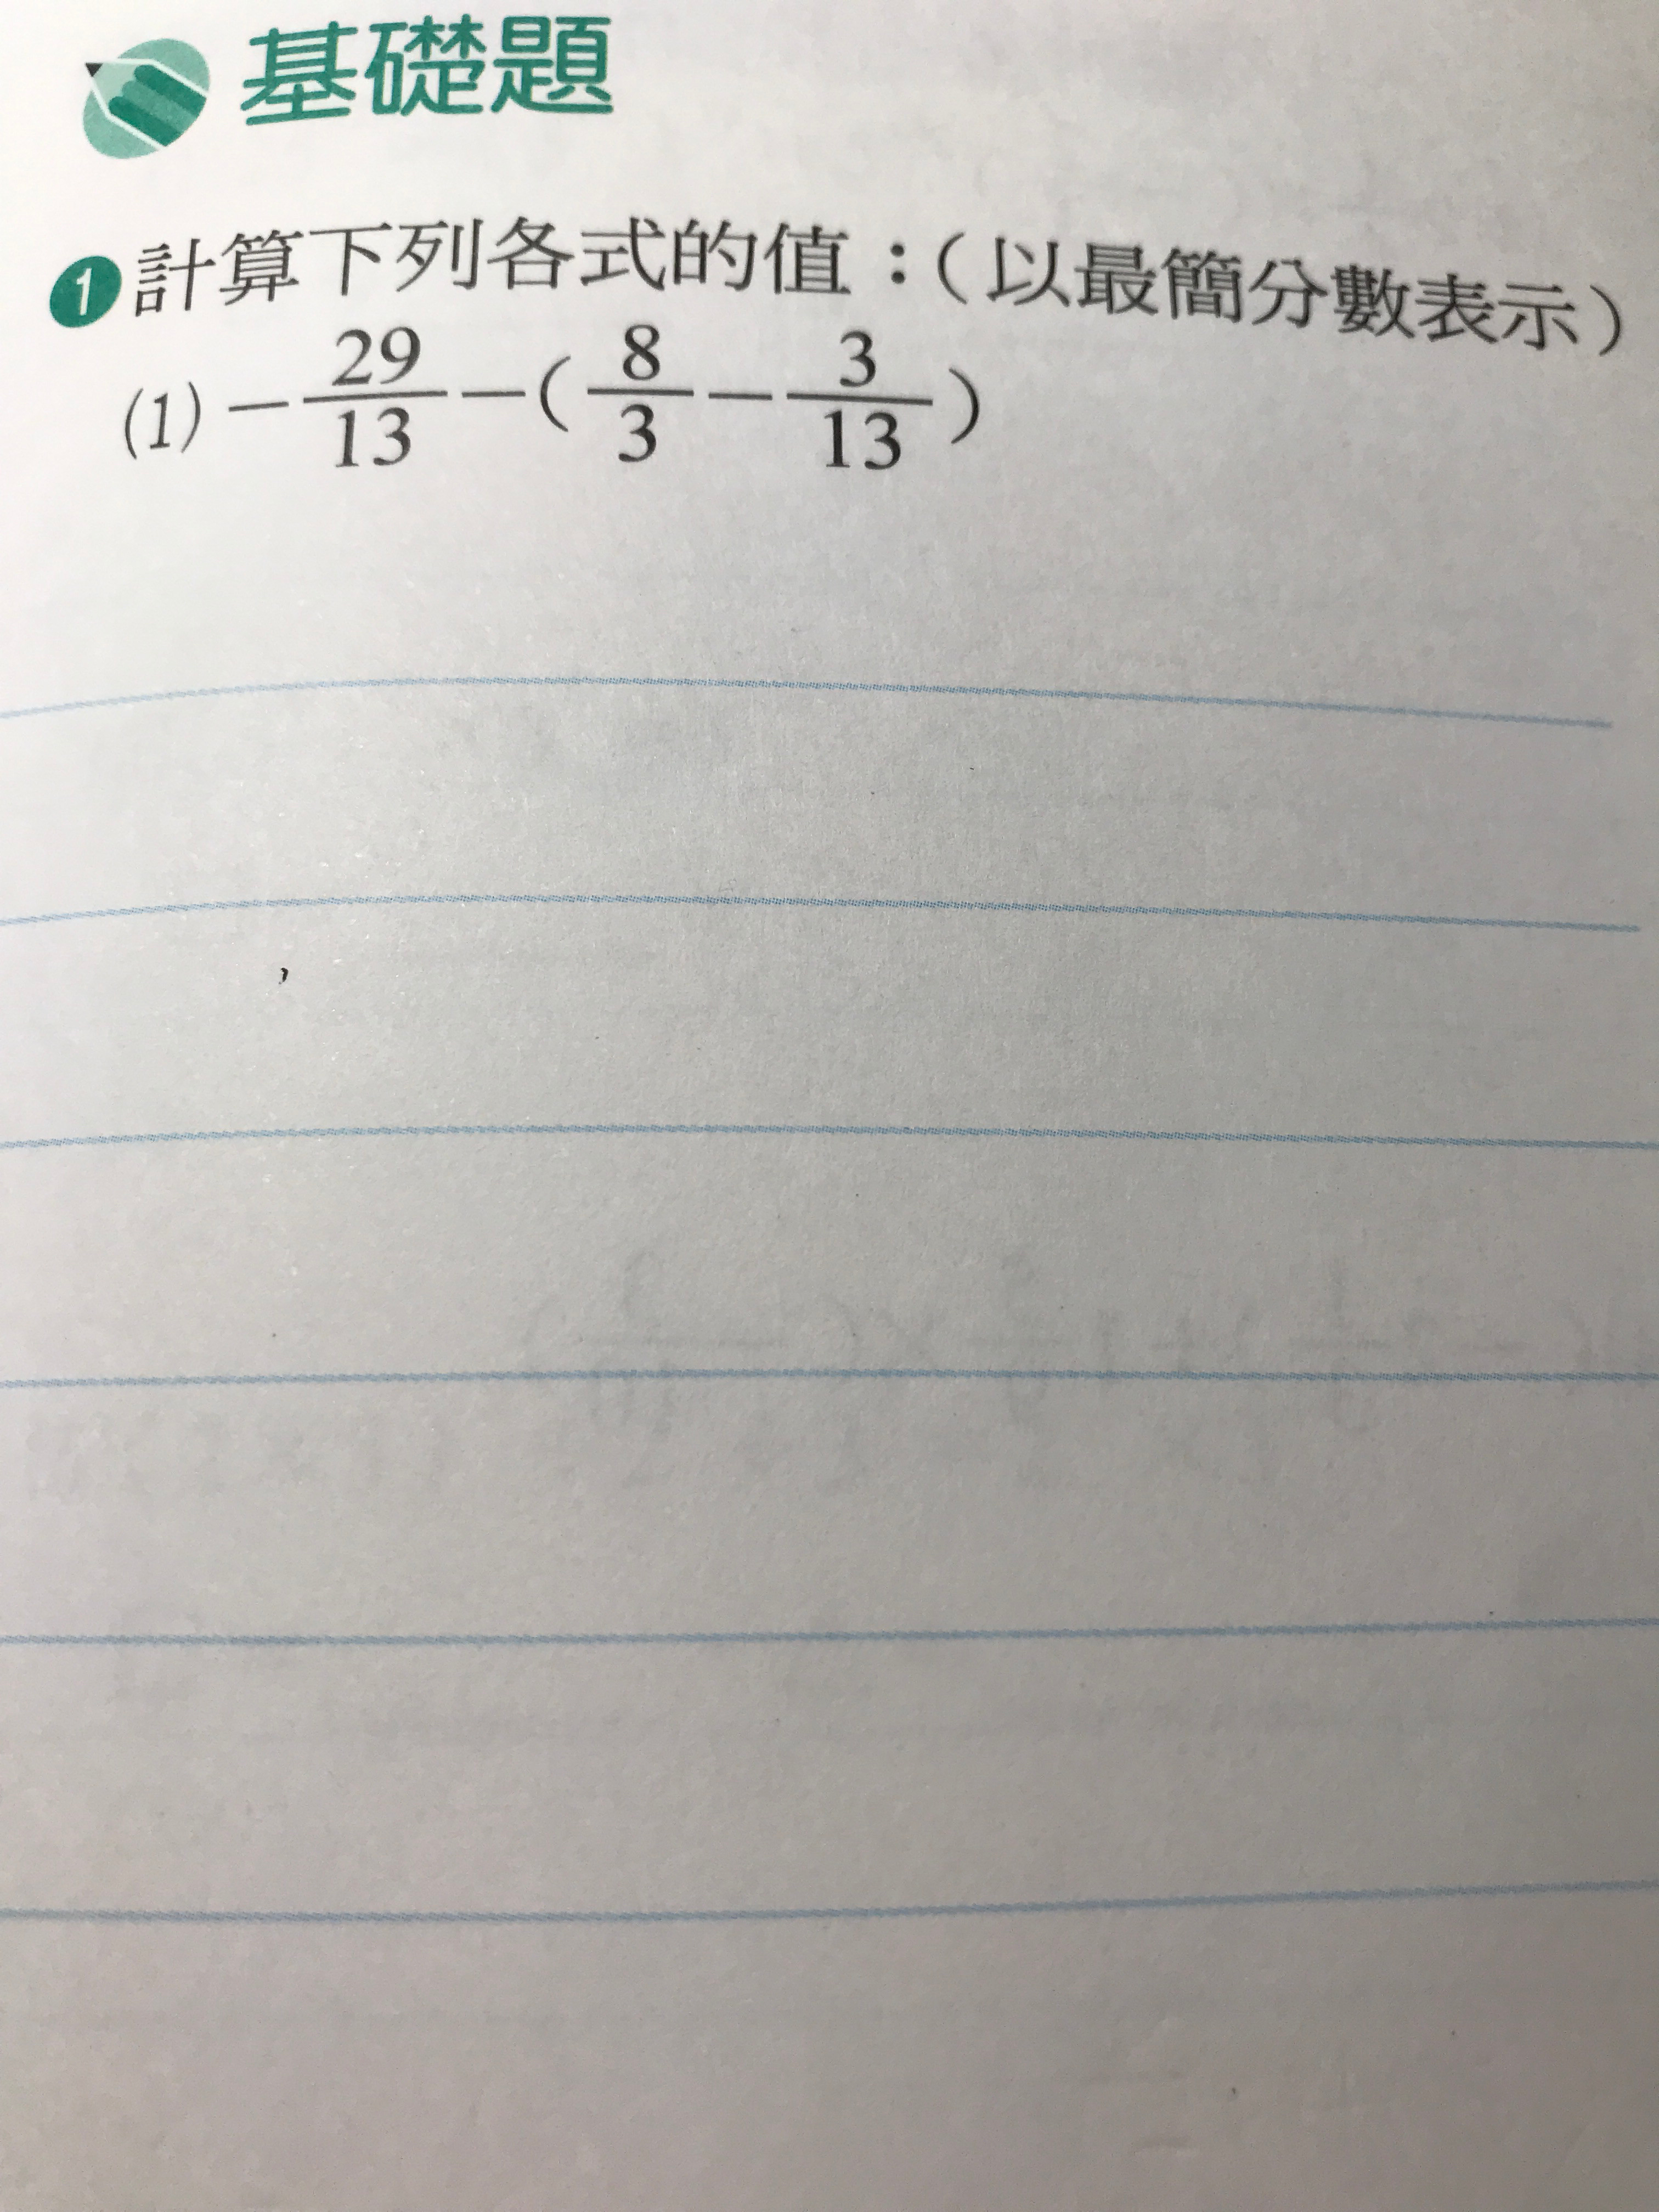 基礎題
1 計算下列各式的值：(以最簡分數表示)
(1) -29/13-(8/3-3/13)